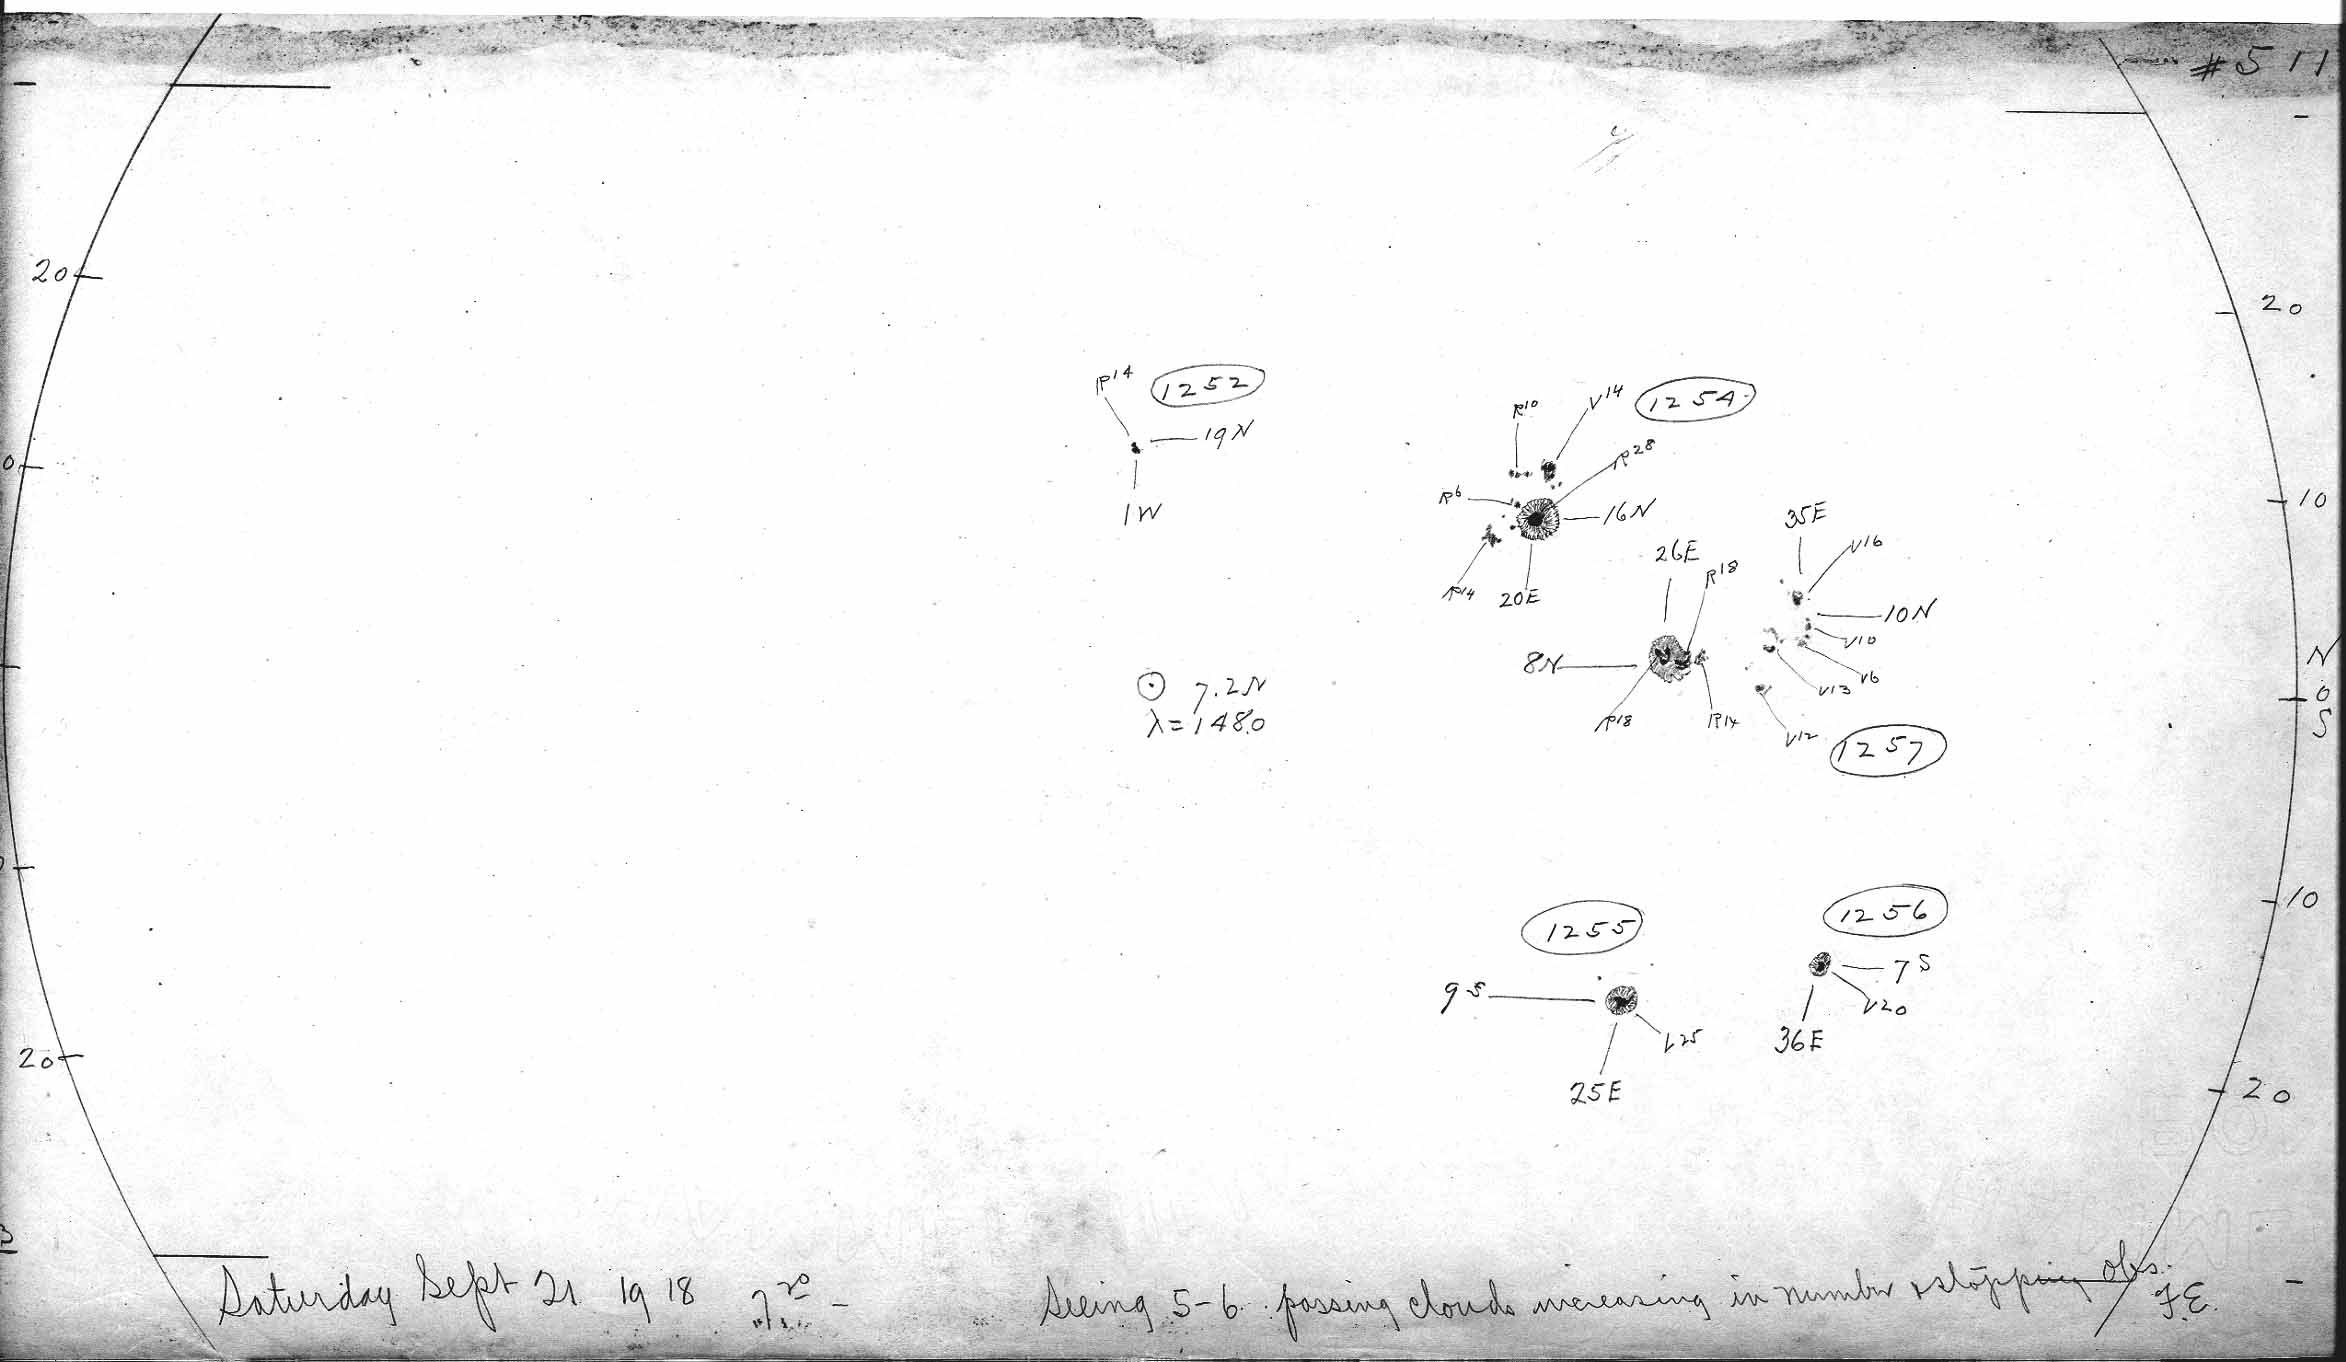 #511
20
20
R14 1252
19N
1W
0
R10 V14 1254
R28
R6
16N
10
R14 20E
35E
26E
V16
R18
10N
V10
8N
N
V6
V13
⊙ 7.2N
0
R18 R14
λ=148.0
S
V12
1257
10
1256
1255
7S
9S
V20
V25
36E
25E
20
20
Saturday Sept 21 1918 7 20 -
Seeing 5-6. passing clouds increasing in number & stopping obs.
F.E.